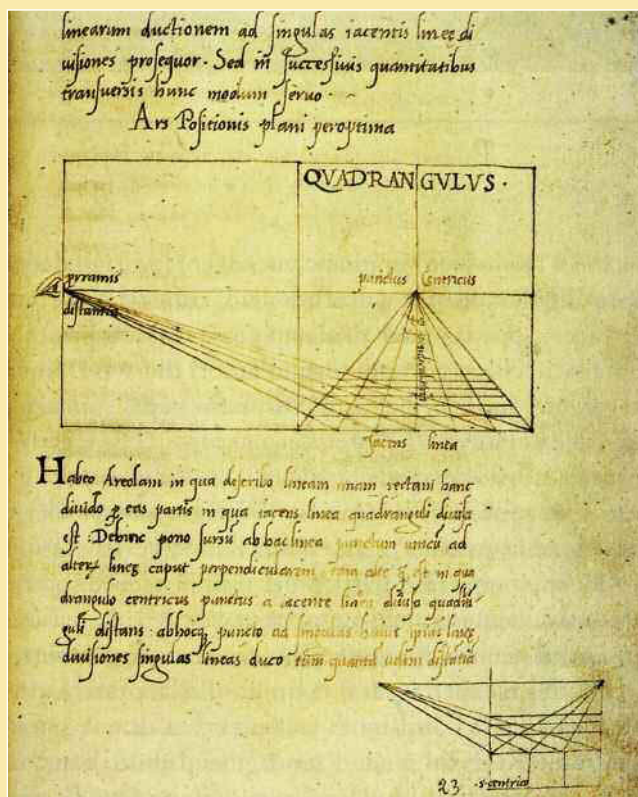 linearum ductionem ad singulas iacentis lineę di
uisiones prosequor. Sed in successiuis quantitatibus
transuersis hunc modum seruo.
Ars Positionis plani peroptima
QVADRANGVLVS.
pyramis punctus Centricus
distantia
Jacens linea
Habeo Areolam in qua describo lineam unam rectam hanc
diuido p eas partis in qua iacens linea quadranguli diuisa
est: Debinc pono sursū ab hac linea punctum unicū ad
alterę lineę caput perpendicularem est in qua
drangulo centricus punctus a iacente diuisa quadrā
guli distans ab hocq puncto ad singulas huius ipsius lineę
diuisiones singulas lineas duco tum
23 s. centrico